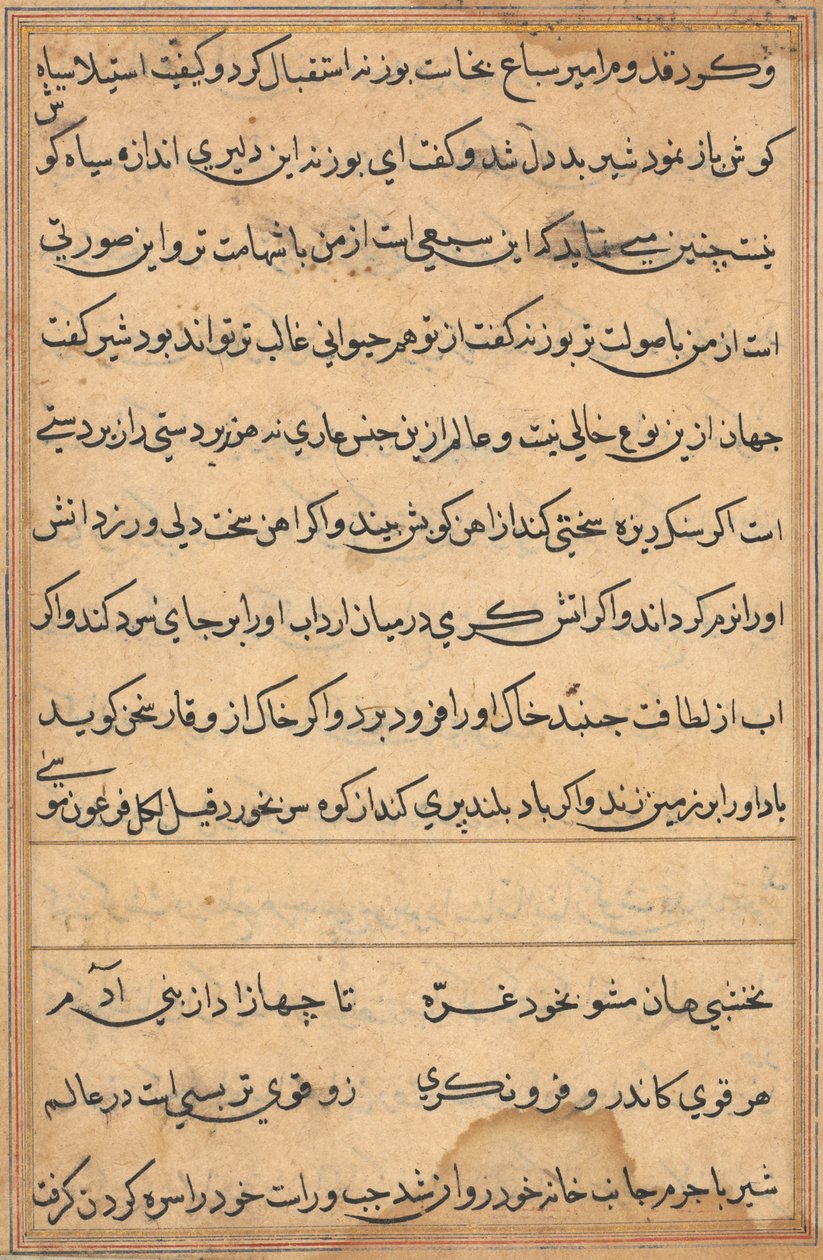 و کرد قدوم امیر سباع بخاست بوزنه استقبال کرد و کیفیت استیلا سیاه
کوش باز نمود شیر بددل شد و کفت ای بوزنه این دلیري اندازه سیاه کوش
نیست چنین مے نماید که این سبعی است از من با شهامت تر و این صورتي
است از من با صولت تر بوزنه کفت از تو هم حیواني غالب تر تواند بود شیر کفت
جهان ازین نوع خالي نیست و عالم ازین جنس عاري نه هر زبردستي را زبردستے
است اکر سنک ریزه سختي کند از اهن کوبش بیند و اکر اهن سخت دلی ورزد اتش
او را نرم کرداند و اکر اتش کرمي در میان ارد اب او را بر جاي سرد کند و اکر
اب از لطافت جنبد خاک او را فرود برد و اکر خاک از وقار سخن کوید
باد او را بر زمین زند و اکر باد بلند پري کند از کوه سر بخورد قیل لکل فرعون موسے
نخشبي هان مشو بخود غرّه تا چها زاد از بني آدم
هر قوي کاندرو فرو نکري زو قوي تر بسي است در عالم
شیر با جرم جانب خانه خود روان شد چپ و راست خود را سره کردن کرفت